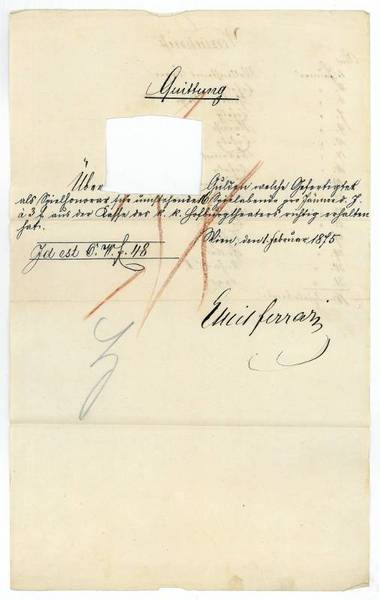 Quittung
Über Gulden welche Gefertigter
als Spielhonorar für umstehende 16 Spielabende pro Jänner d. J.
à 3 f. aus der Kasse des k. k. Hofburgtheaters richtig erhalten
hat.
Wien, den 1. Februar 1875
Id est Ö. W. f. 48
Emil Ferrari